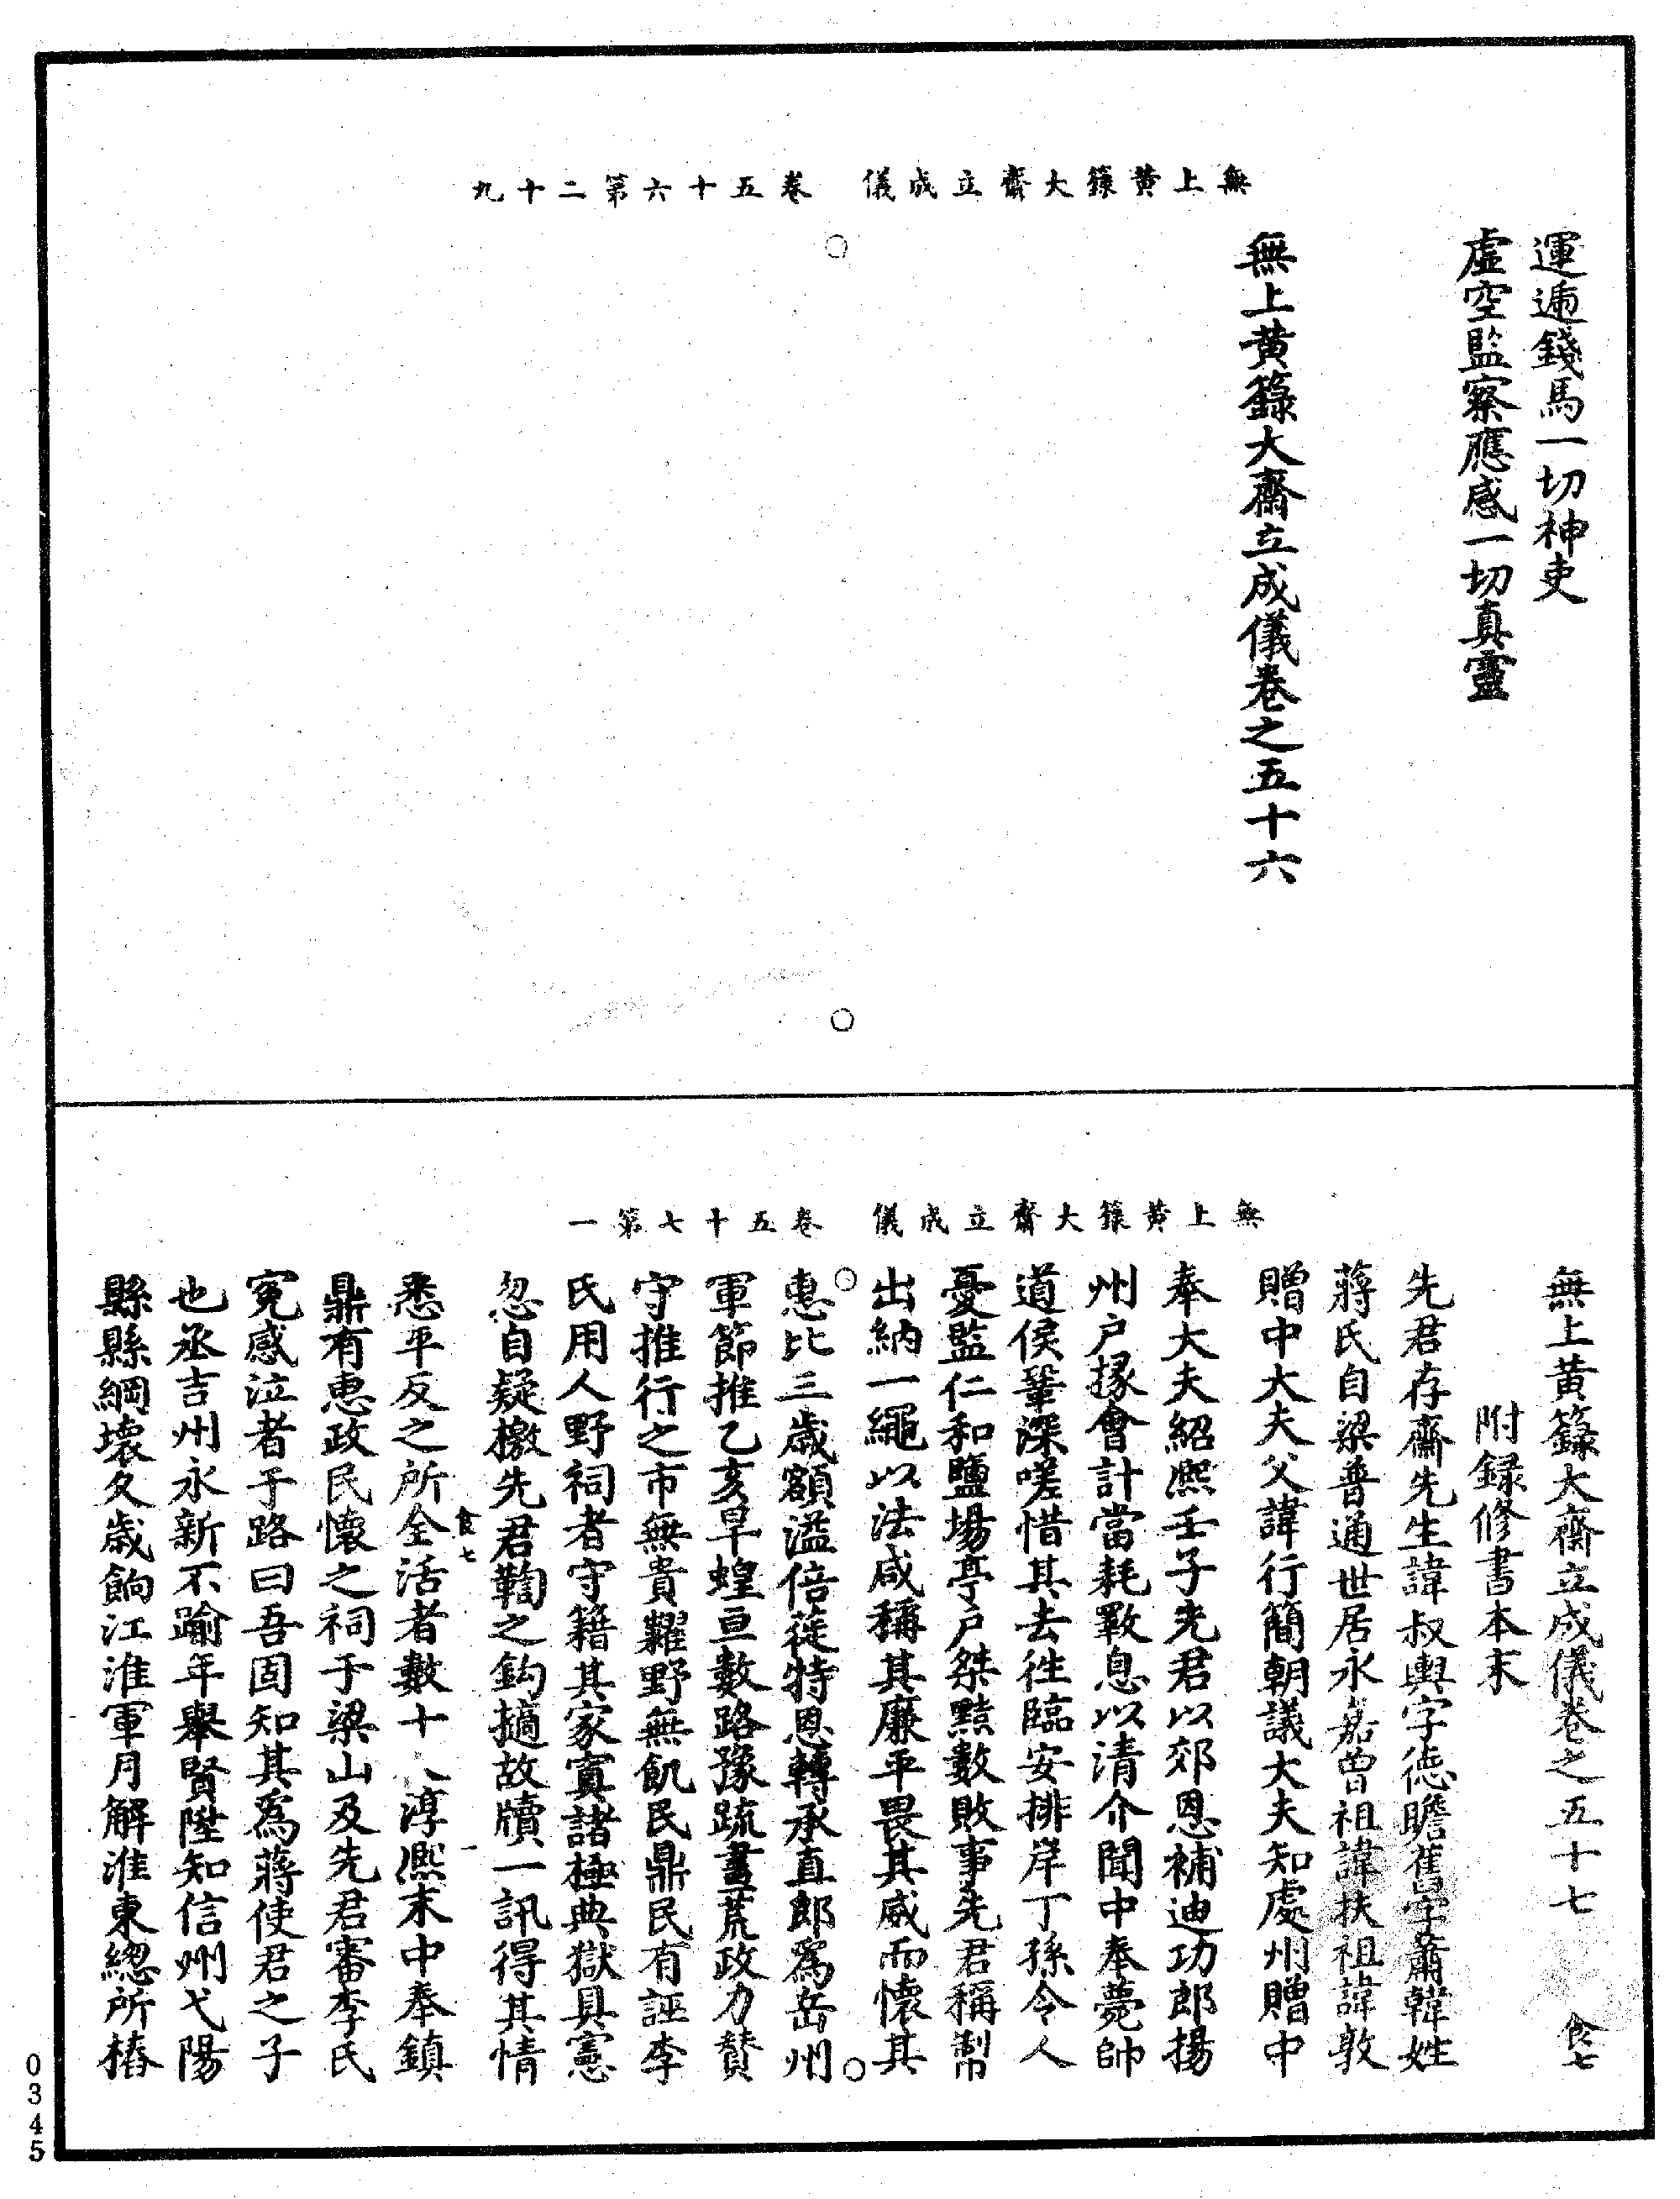 無上黃籙大齋立成儀　卷五十六第二十九
運遞錢馬一切神吏
虛空監察應感一切真靈
無上黃籙大齋立成儀卷之五十六
無上黃籙大齋立成儀　卷五十七第一
無上黃籙大齋立成儀卷之五十七　食七
附録修書本末
先君存齋先生諱叔輿字德瞻舊字蕭韓姓
蔣氏自梁普通世居永嘉曾祖諱扶祖諱敦
贈中大夫父諱行簡朝議大夫知處州贈中
奉大夫紹熙壬子先君以郊恩補迪功郎揚
州户掾會計當耗斁息以清介聞中奉薨帥
道侯鞏深嗟惜其去徃臨安排岸丁孫令人
憂監仁和鹽場亭户桀黠數敗事先君稱掣
出納一繩以法咸稱其廉平畏其威而懷其
惠比三歲額溢倍蓰特恩轉承直郎爲岳州
軍節推乙亥旱蝗亘數路豫疏畫荒政力賛
守推行之市無貴糴野無飢民鼎民有誣李
氏用人野祠者守籍其家寘諸極典獄具憲
忽自疑檄先君鞫之鈎擿故牘一訊得其情
悉平反之所全活者數十人淳熙末中奉鎮
鼎有惠政民懷之祠于梁山及先君審李氏
冤感泣者于路曰吾固知其爲蔣使君之子
也丞吉州永新不踰年舉賢陞知信州弋陽
縣縣綱壞久歲餉江淮軍月解淮東總所樁
食七　一
0345